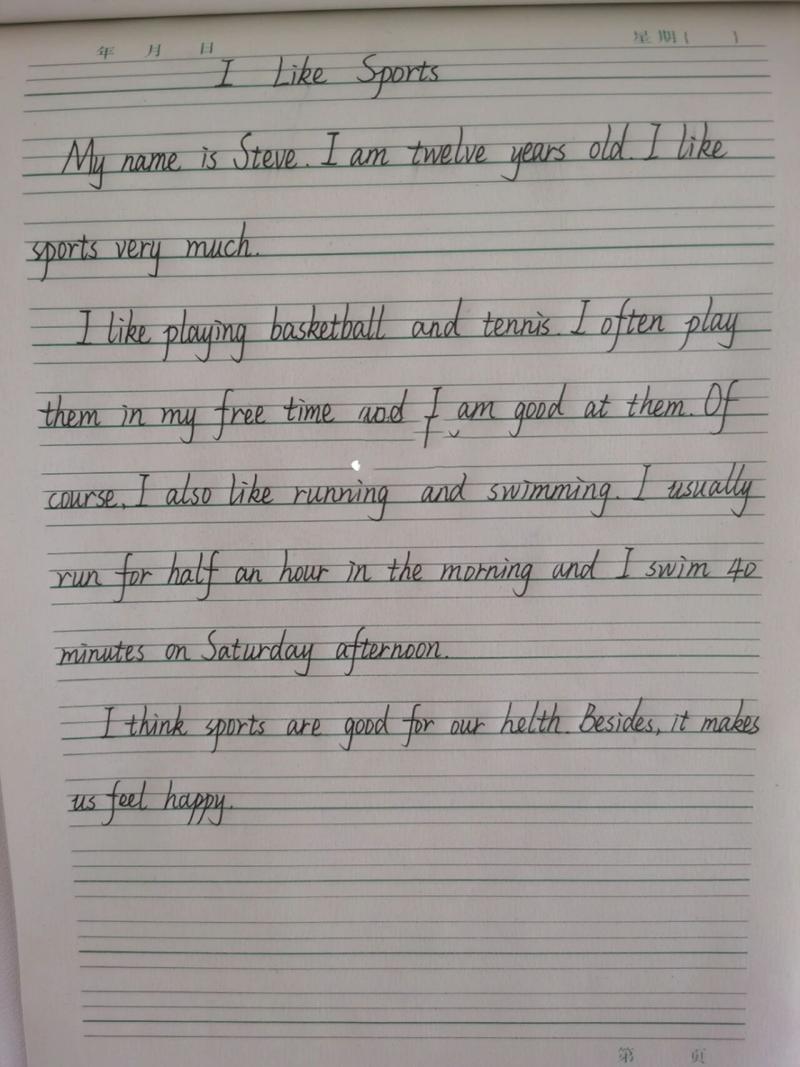 年 月 日 星期( )
I Like Sports
My name is Steve. I am twelve years old. I like
sports very much.
I like playing basketball and tennis. I often play
them in my free time and I am good at them. Of
course, I also like running and swimming. I usually
run for half an hour in the morning and I swim 40
minutes on Saturday afternoon.
I think sports are good for our helth. Besides, it makes
us feel happy.
第 页